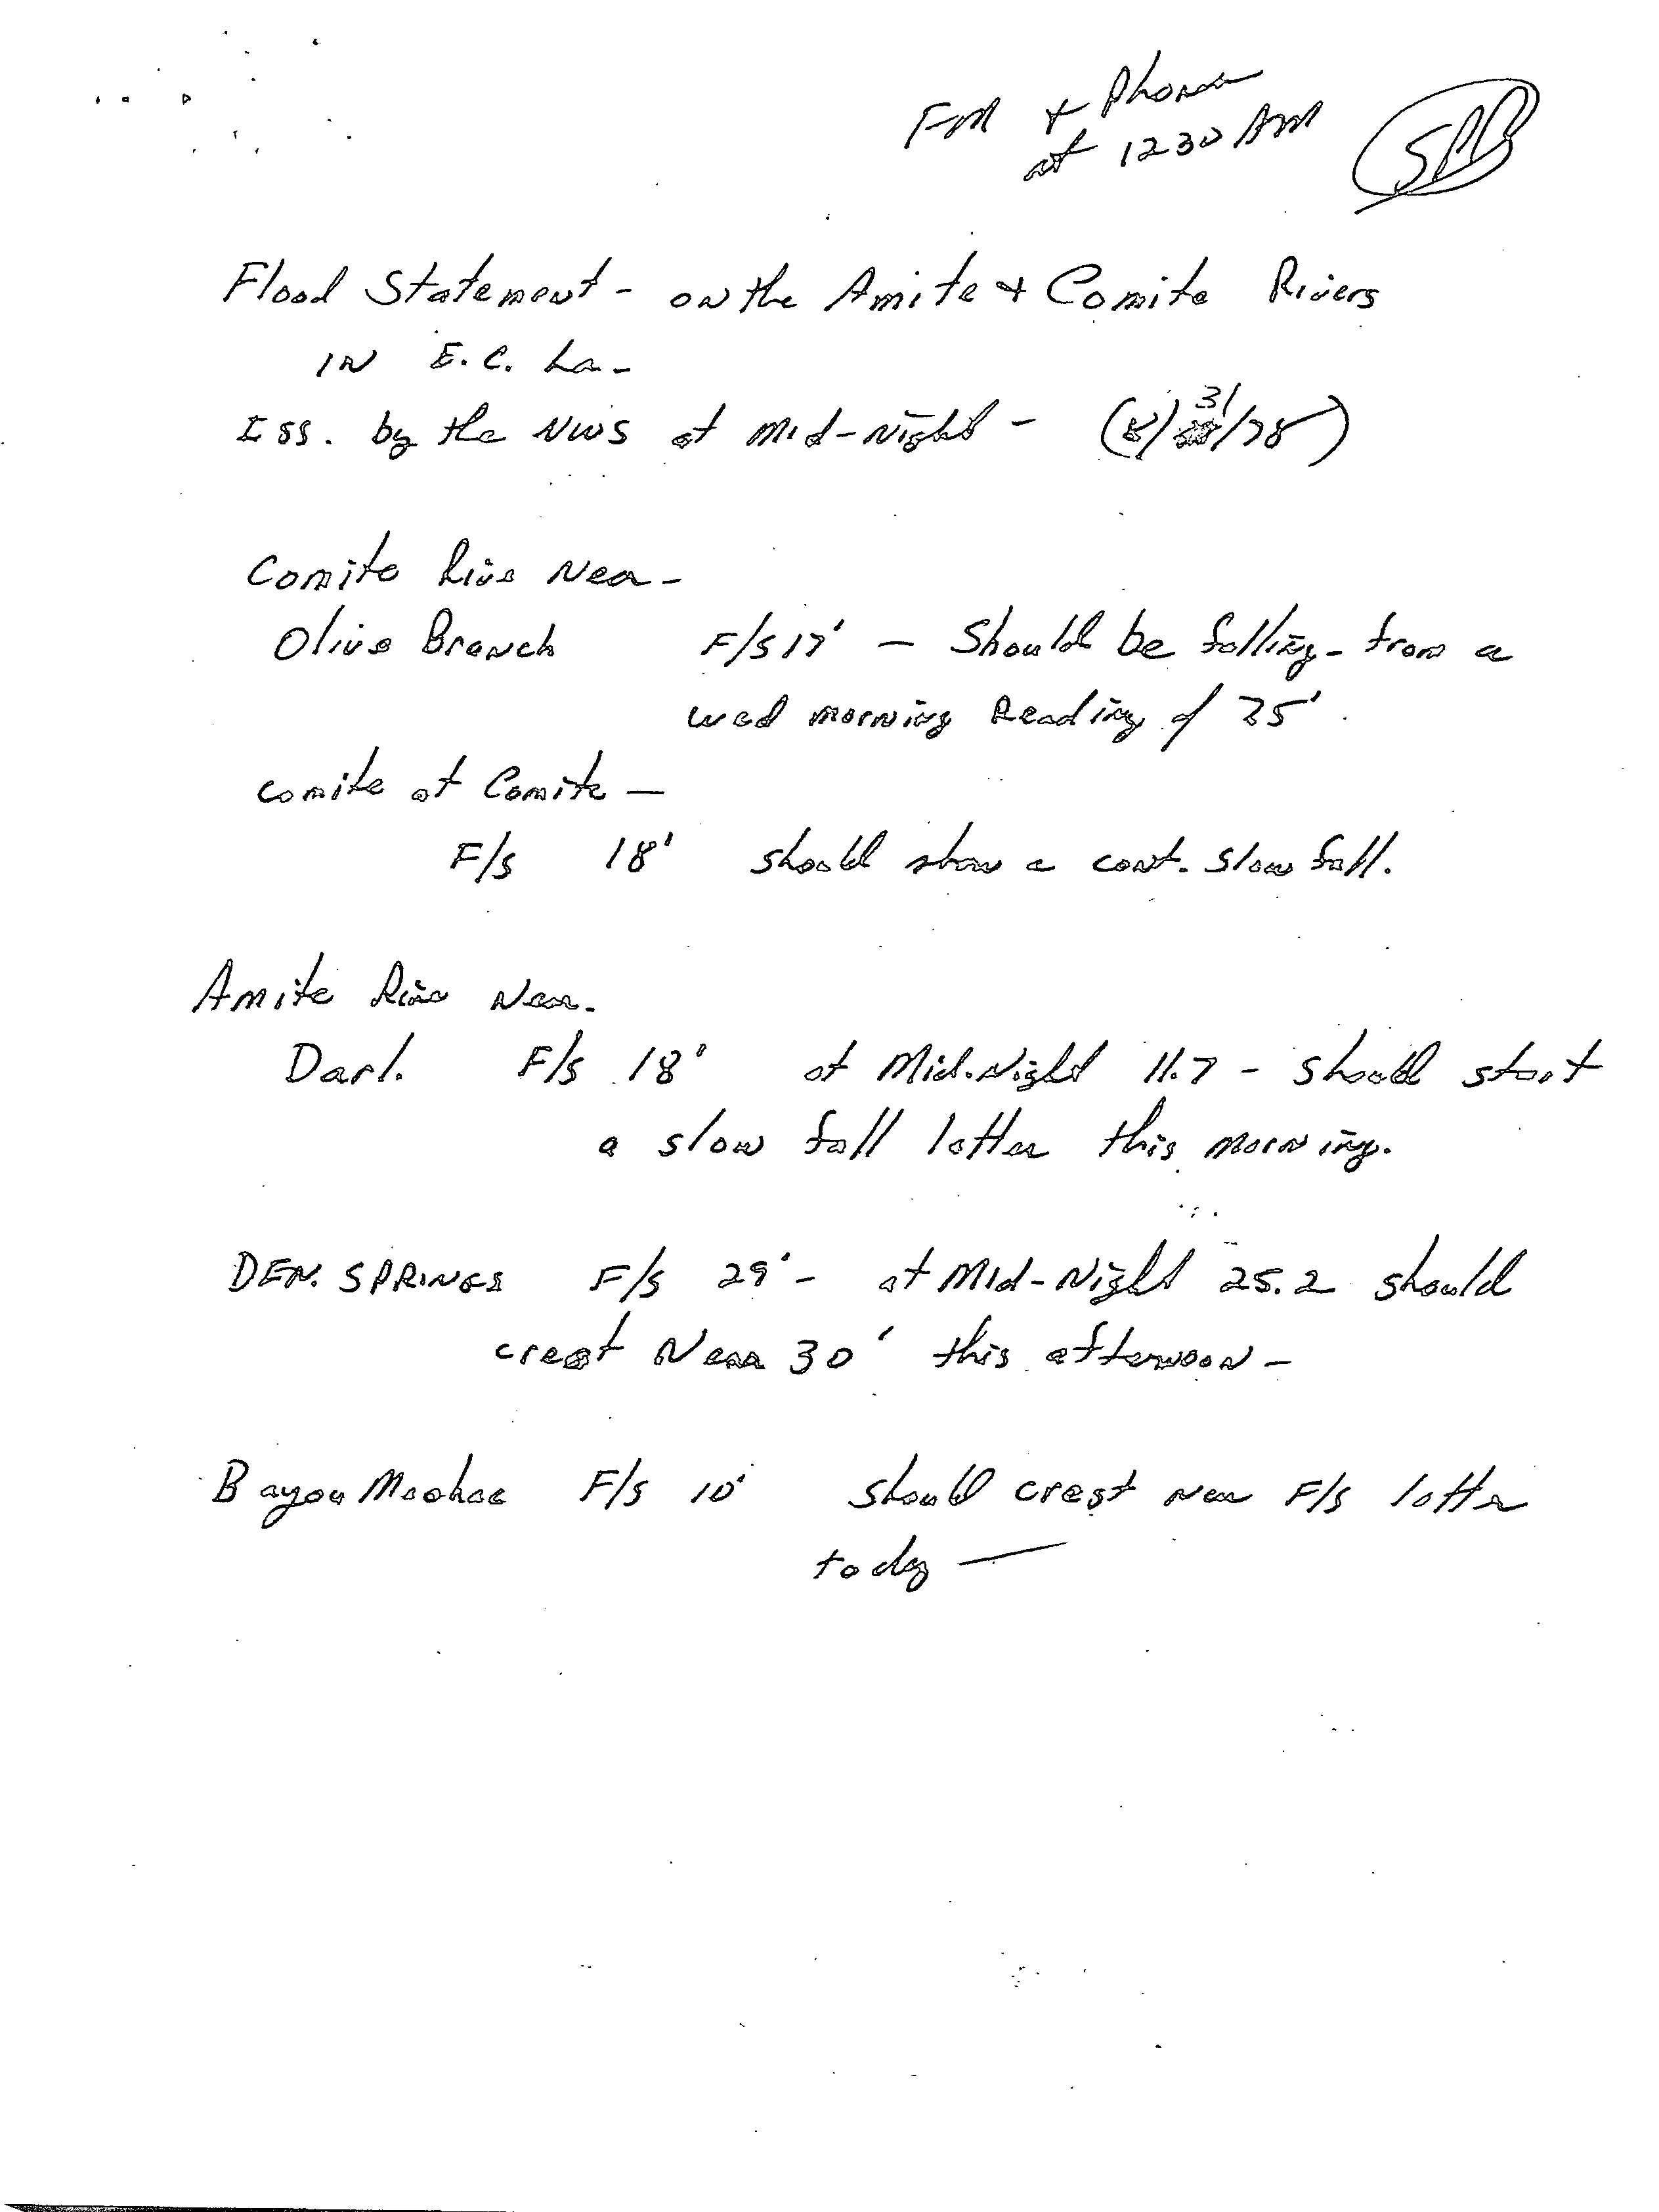 FM + Phone
at 1230 AM SMB
Flood Statement - on the Amite + Comite Rivers
IN E.C. La -
Iss. by the NWS at Mid-Night - (8/31/78)
Comite Rive Near -
Olive Branch F/S 17' - Should be falling - from a
wed morning Reading of 25'.
Comite at Comite -
F/s 18' should show a cont. slow fall.
Amite Rive Near.
Darl. F/s 18' at Mid-Night 11.7 - should start
a slow fall latter this morning.
DEN. SPRINGS F/s 29' - at MId-Night 25.2 should
crest Near 30' this afternoon -
Bayou Machac F/s 10' should crest near F/s latter
today -